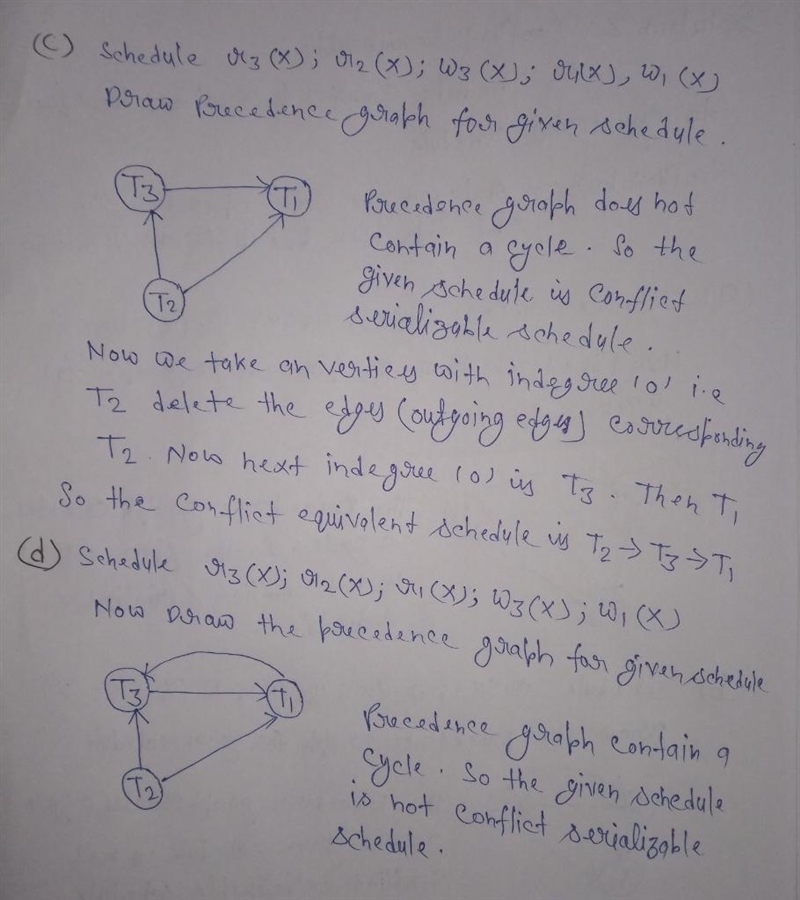 (C) Schedule r3(X); r2(X); W3(X); r1(X), W1(X)
Draw Precedence graph for given schedule.
T3 T1
Precedence graph does not
T2
contain a cycle. So the
given schedule is conflict
serializable schedule.
Now we take an verticy with indegree '0' i.e
T2 delete the edges (outgoing edges) corresponding
T2. Now next indegree (0) is T3. Then T1
So the conflict equivalent schedule is T2→T3→T1
(d) Schedule r3(X); r2(X); r1(X); W3(X); W1(X)
Now Draw the precedence graph for given schedule
T3 T1
T2
Precedence graph contain a
cycle. So the given schedule
is not conflict serializable
schedule.